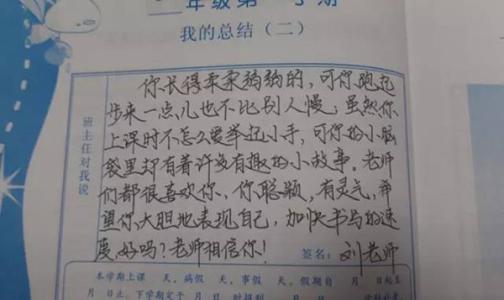 年级第 学期
我的总结（二）
班主任对我说
你长得柔柔弱弱的，可你跑起
步来一点儿也不比别人慢；虽然你
上课时不怎么爱举起小手，可你的小脑
袋里却有着许多有趣的小故事。老师
们都很喜欢你，你聪颖，有灵气，希
望你大胆地表现自己，加快书写的速
度，好吗？老师相信你！
签名：刘老师
本学期上课 天，病假 天，事假 天，假期自 月 日起至
月 日止，下学期定于 月 日